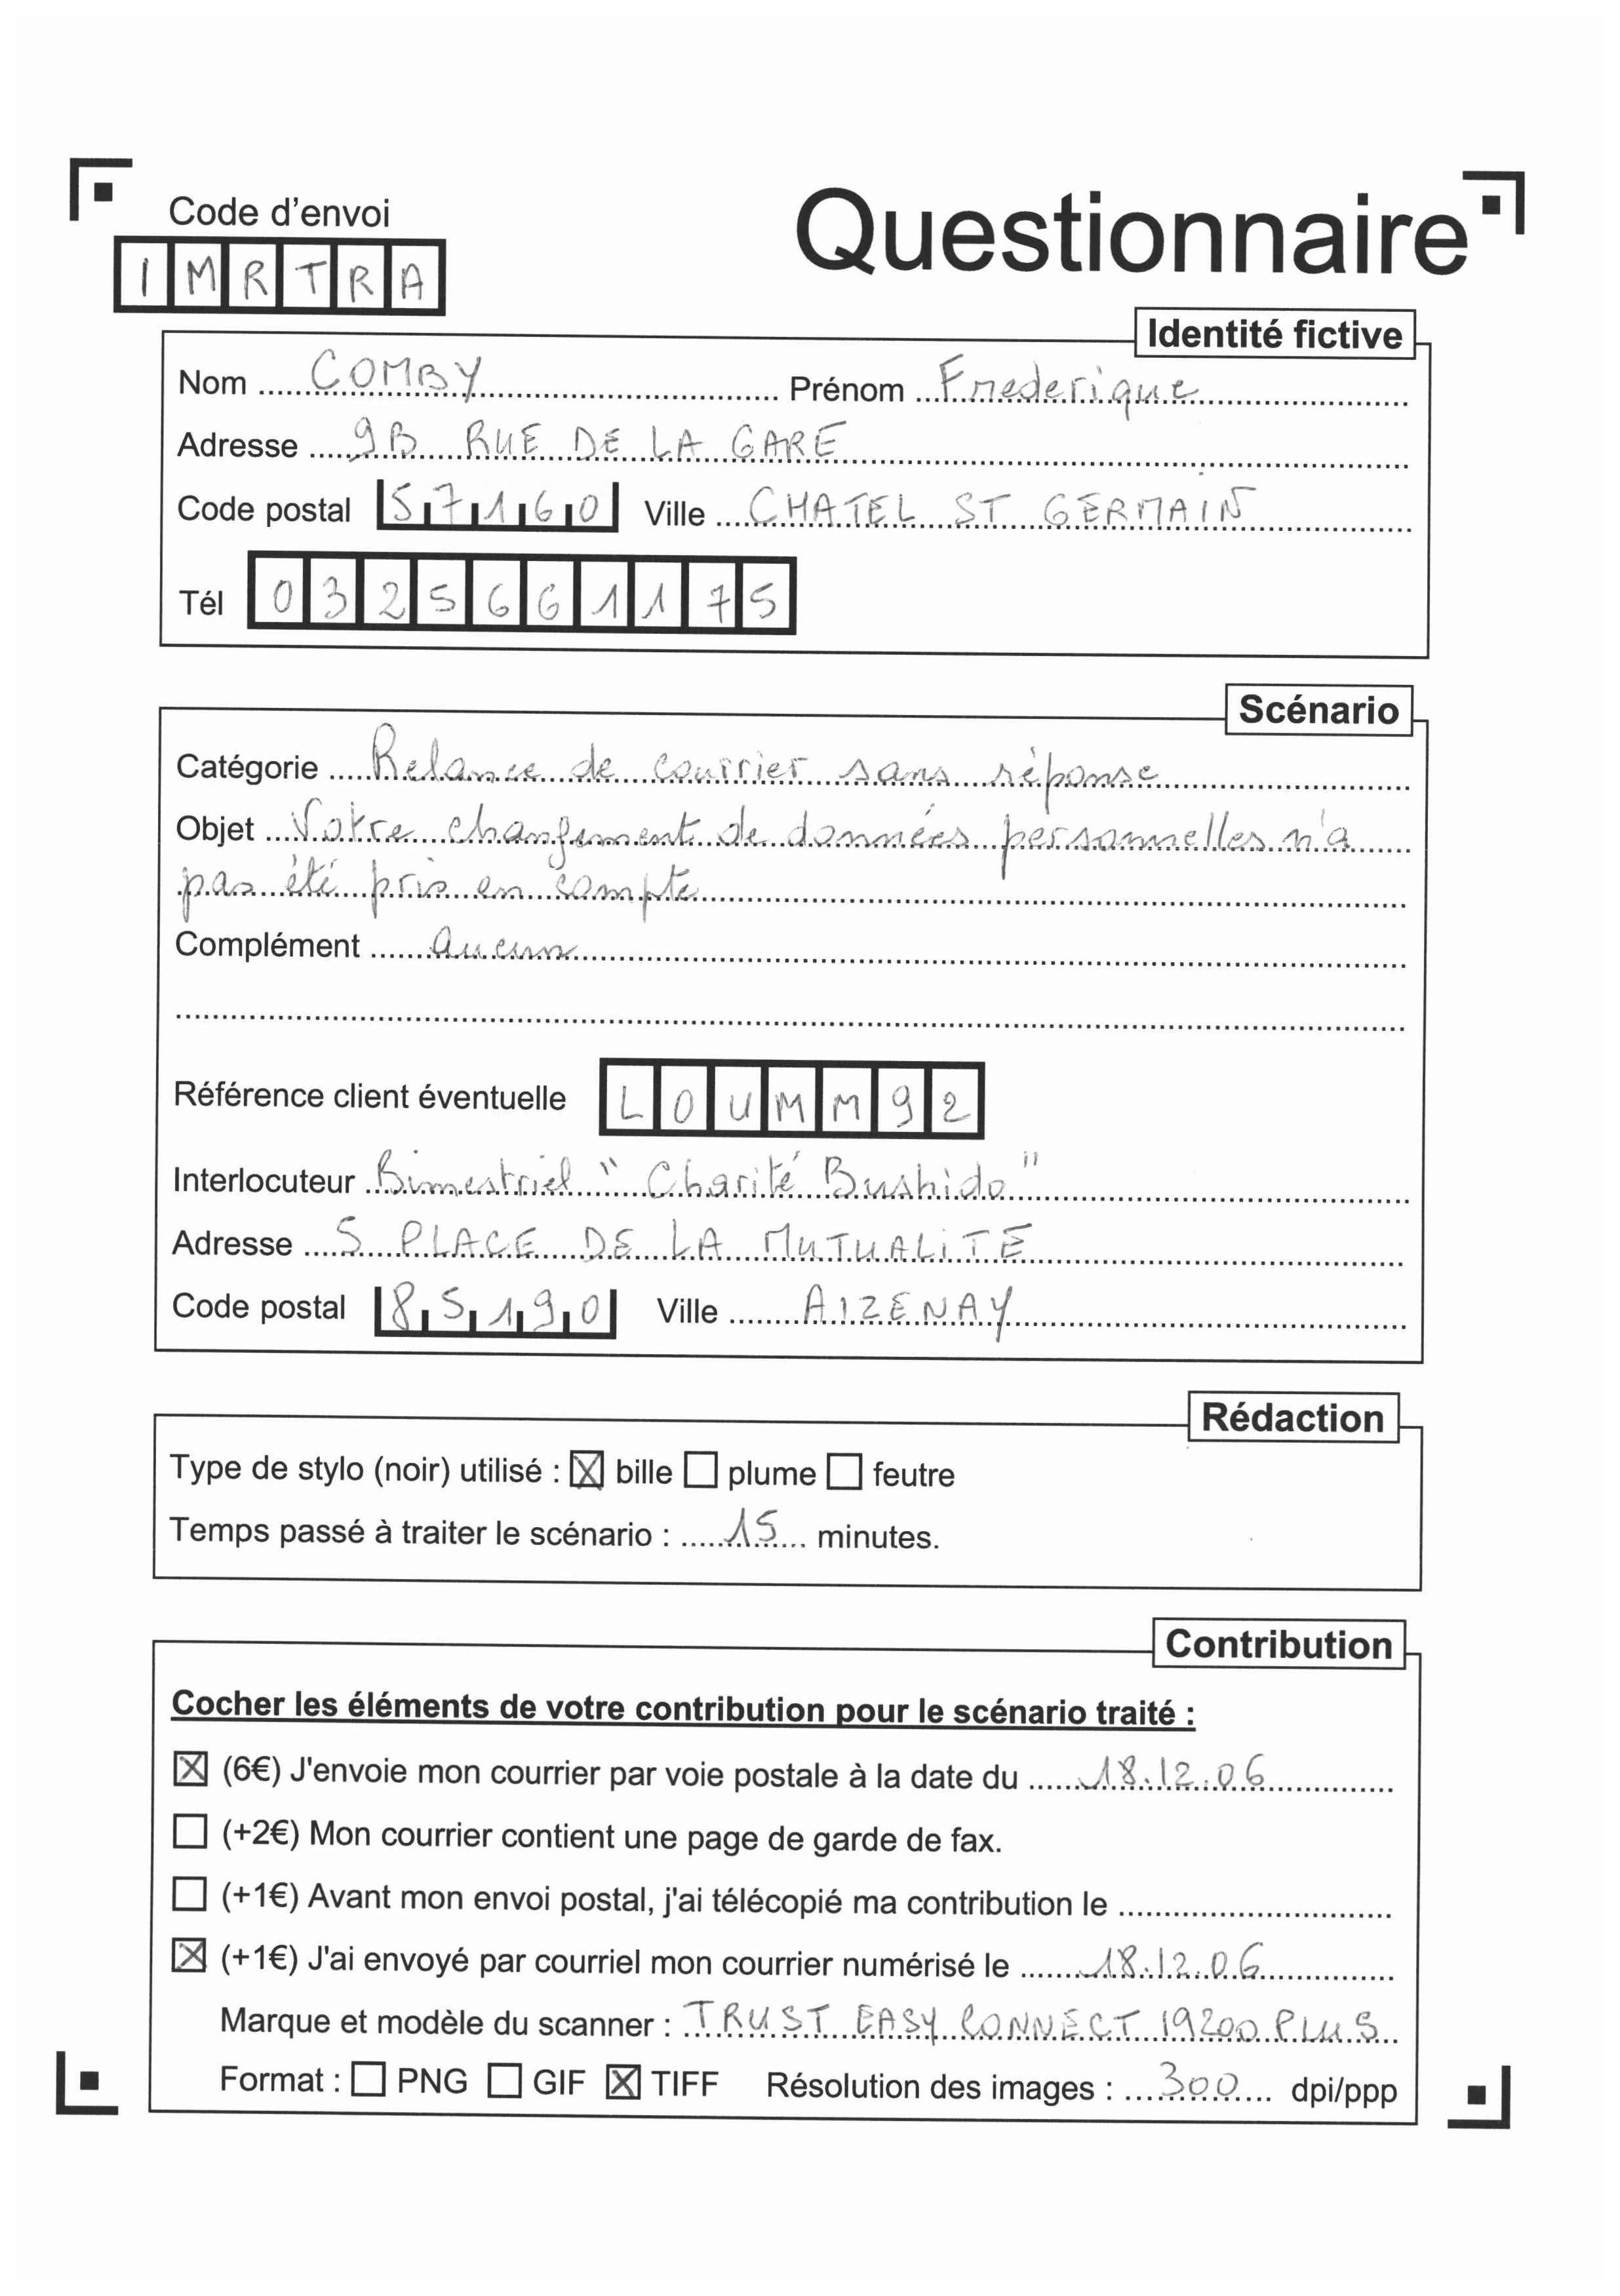 Code d'envoi
IMRTRA
Questionnaire
Identité fictive
Nom COMBY Prénom Frederique
Adresse 9B RUE DE LA GARE
Code postal 57160 Ville CHATEL ST GERMAIN
Tél 0325661175
Scénario
Catégorie Relance de courrier sans réponse
Objet Votre changement de données personnelles n'a
pas été pris en compte
Complément aucun
Référence client éventuelle LOUMM92
Interlocuteur Bimestriel "Charité Bushido"
Adresse 5 PLACE DE LA MUTUALITÉ
Code postal 85190 Ville AIZENAY
Rédaction
Type de stylo (noir) utilisé : ☒ bille ☐ plume ☐ feutre
Temps passé à traiter le scénario : 15 minutes.
Contribution
Cocher les éléments de votre contribution pour le scénario traité :
☒ (6€) J'envoie mon courrier par voie postale à la date du 18.12.06
☐ (+2€) Mon courrier contient une page de garde de fax.
☐ (+1€) Avant mon envoi postal, j'ai télécopié ma contribution le
☒ (+1€) J'ai envoyé par courriel mon courrier numérisé le 18.12.06
Marque et modèle du scanner : TRUST EASY CONNECT 19200 PLUS
Format : ☐ PNG ☐ GIF ☒ TIFF Résolution des images : 300 dpi/ppp